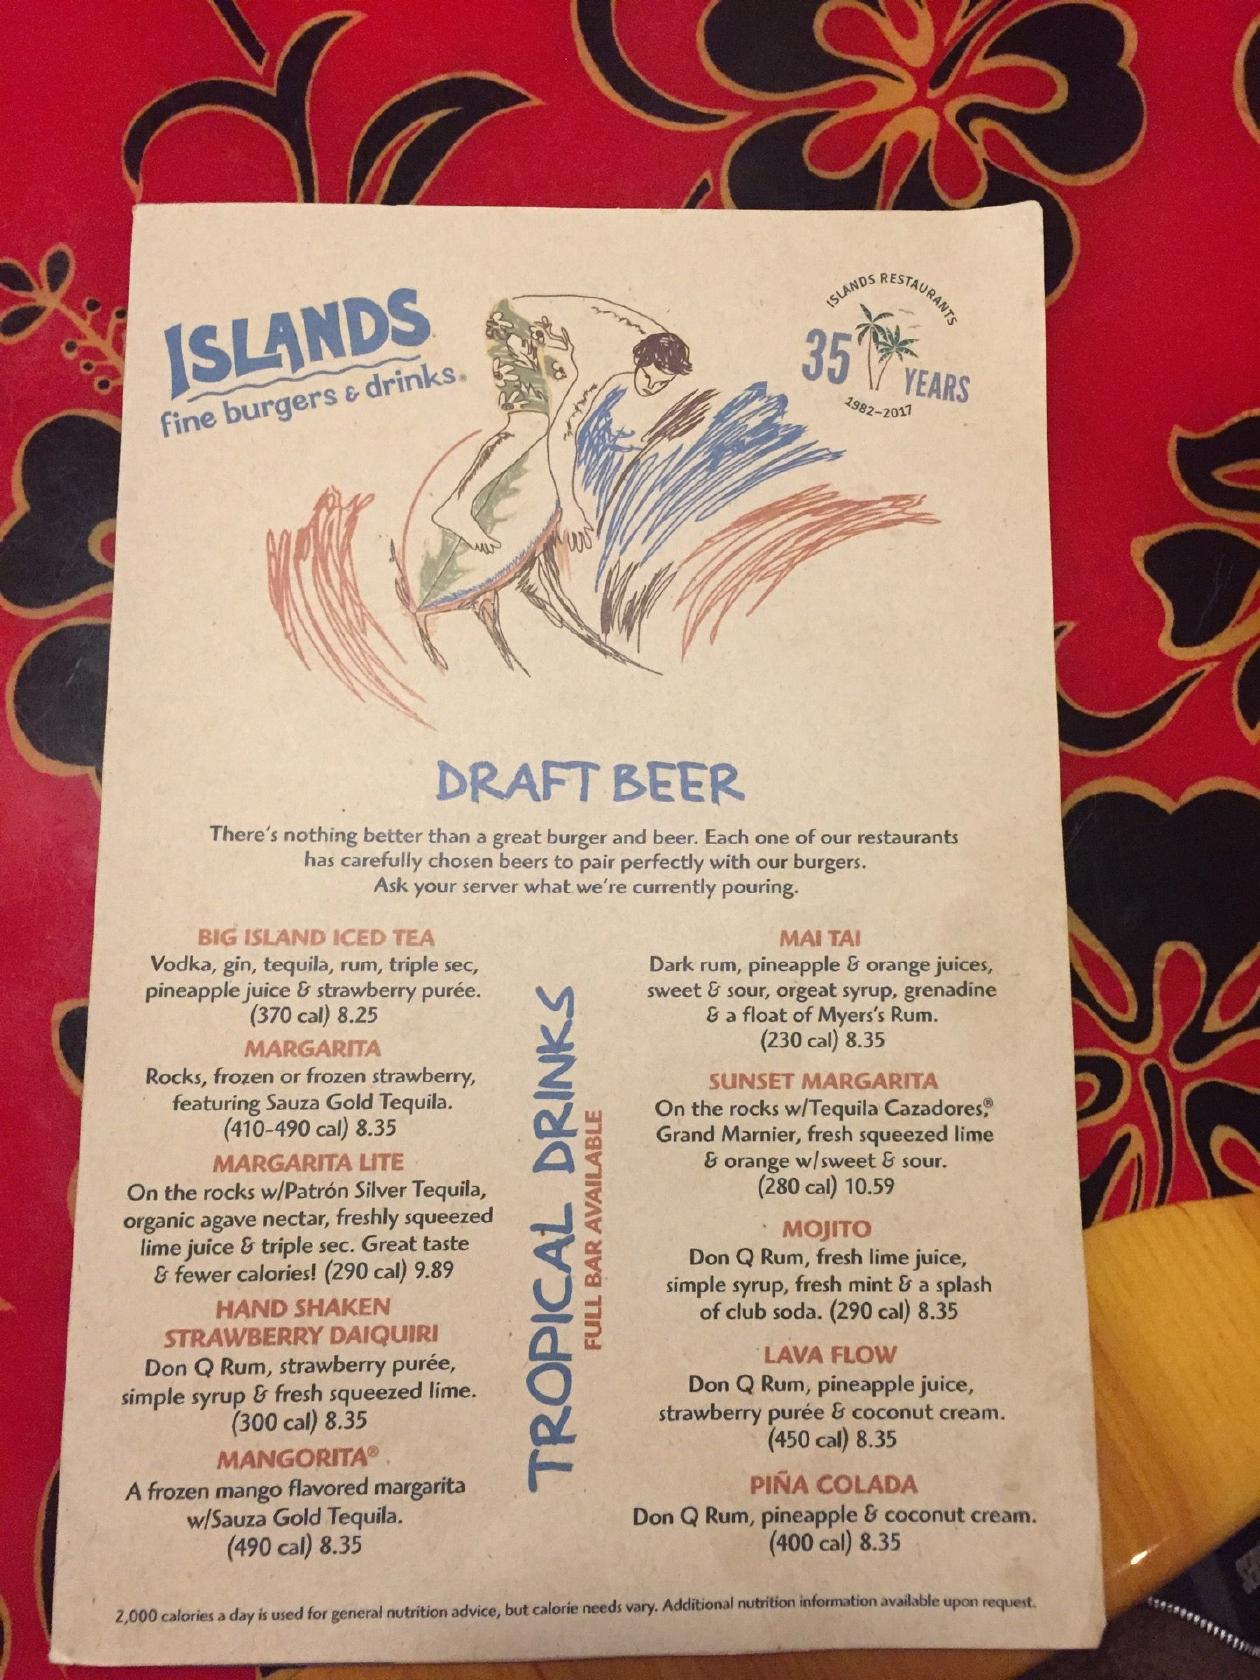 ISLANDS
fine burgers & drinks®
ISLANDS RESTAURANTS
35 YEARS
1982–2017
DRAFT BEER
There's nothing better than a great burger and beer. Each one of our restaurants
has carefully chosen beers to pair perfectly with our burgers.
Ask your server what we're currently pouring.
BIG ISLAND ICED TEA
Vodka, gin, tequila, rum, triple sec,
pineapple juice & strawberry purée.
(370 cal) 8.25
MARGARITA
Rocks, frozen or frozen strawberry,
featuring Sauza Gold Tequila.
(410-490 cal) 8.35
MARGARITA LITE
On the rocks w/Patrón Silver Tequila,
organic agave nectar, freshly squeezed
lime juice & triple sec. Great taste
& fewer calories! (290 cal) 9.89
HAND SHAKEN
STRAWBERRY DAIQUIRI
Don Q Rum, strawberry purée,
simple syrup & fresh squeezed lime.
(300 cal) 8.35
MANGORITA®
A frozen mango flavored margarita
w/Sauza Gold Tequila.
(490 cal) 8.35
TROPICAL DRINKS
FULL BAR AVAILABLE
MAI TAI
Dark rum, pineapple & orange juices,
sweet & sour, orgeat syrup, grenadine
& a float of Myers's Rum.
(230 cal) 8.35
SUNSET MARGARITA
On the rocks w/Tequila Cazadores,®
Grand Marnier, fresh squeezed lime
& orange w/sweet & sour.
(280 cal) 10.59
MOJITO
Don Q Rum, fresh lime juice,
simple syrup, fresh mint & a splash
of club soda. (290 cal) 8.35
LAVA FLOW
Don Q Rum, pineapple juice,
strawberry purée & coconut cream.
(450 cal) 8.35
PIÑA COLADA
Don Q Rum, pineapple & coconut cream.
(400 cal) 8.35
2,000 calories a day is used for general nutrition advice, but calorie needs vary. Additional nutrition information available upon request.